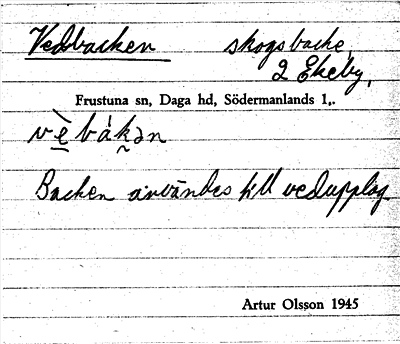 Vedbacken skogsbacke,
2 Ekeby,
Frustuna sn, Daga hd, Södermanlands l,.
vè̱bákən
Backen användes till vedupplag
Artur Olsson 1945